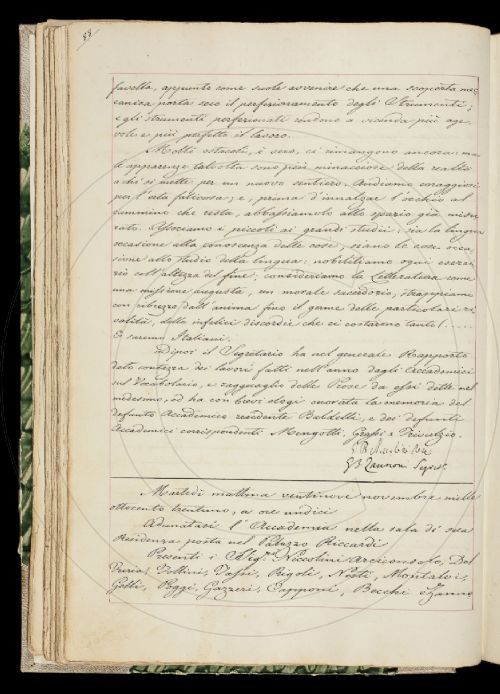 88
favella, appunto come suole avvenire che una scoperta mec
canica porta seco il perfezionamento degli Strumenti;
e gli strumenti perfezionati rendono a vicenda più age
vole e più perfetto il lavoro.
Molti ostacoli, è vero, ci rimangono ancora: ma
le apparenze talvolta sono più minacciose della realtà
a chi si mette per un nuovo sentiero. Andiamo coraggiosi
per l'erta faticosa; e, prima d'innalzar l'occhio al
cammino che resta, abbassiamolo allo spazio già misu
rato. Associamo i piccoli ai grandi studii; sia la lingua
occasione alla conoscenza delle cose, siano le cose occa
sione allo studio della lingua: nobilitiamo ogni eserci
zio coll'altezza del fine; consideriamo la Letteratura come
una missione augusta, un morale sacerdozio; strappiamo
con ribrezzo dall'anima fino il germe delle particolari ri
valità, delle infelici discordie che ci costarono tanto! .....
E saremo Italiani.
Indipoi il Segretario ha nel generale Rapporto
dato contezza dei lavori fatti nell'anno dagli Accademici
sul Vocabolario, e ragguaglio delle Prose da essi dette nel
medesimo, ed ha con brevi elogi onorata la memoria del
defunto Accademico residente Baldelli, e dei defunti
Accademici corrispondenti Mengotti, Grassi e Trivulzio.
G B Zannoni Segret.
Martedì mattina ventinove novembre mille
ottocento trentuno, a ore undici
Adunatasi l'Accademia nella sala di sua
Residenza posta nel Palazzo Riccardi
Presenti i Sigg.ri Niccolini Arciconsolo, Del
Furia, Follini, Tassi, Rigoli, Nesti, Montalvi,
Gelli, Poggi, Gazzeri, Capponi, Becchi Zanno